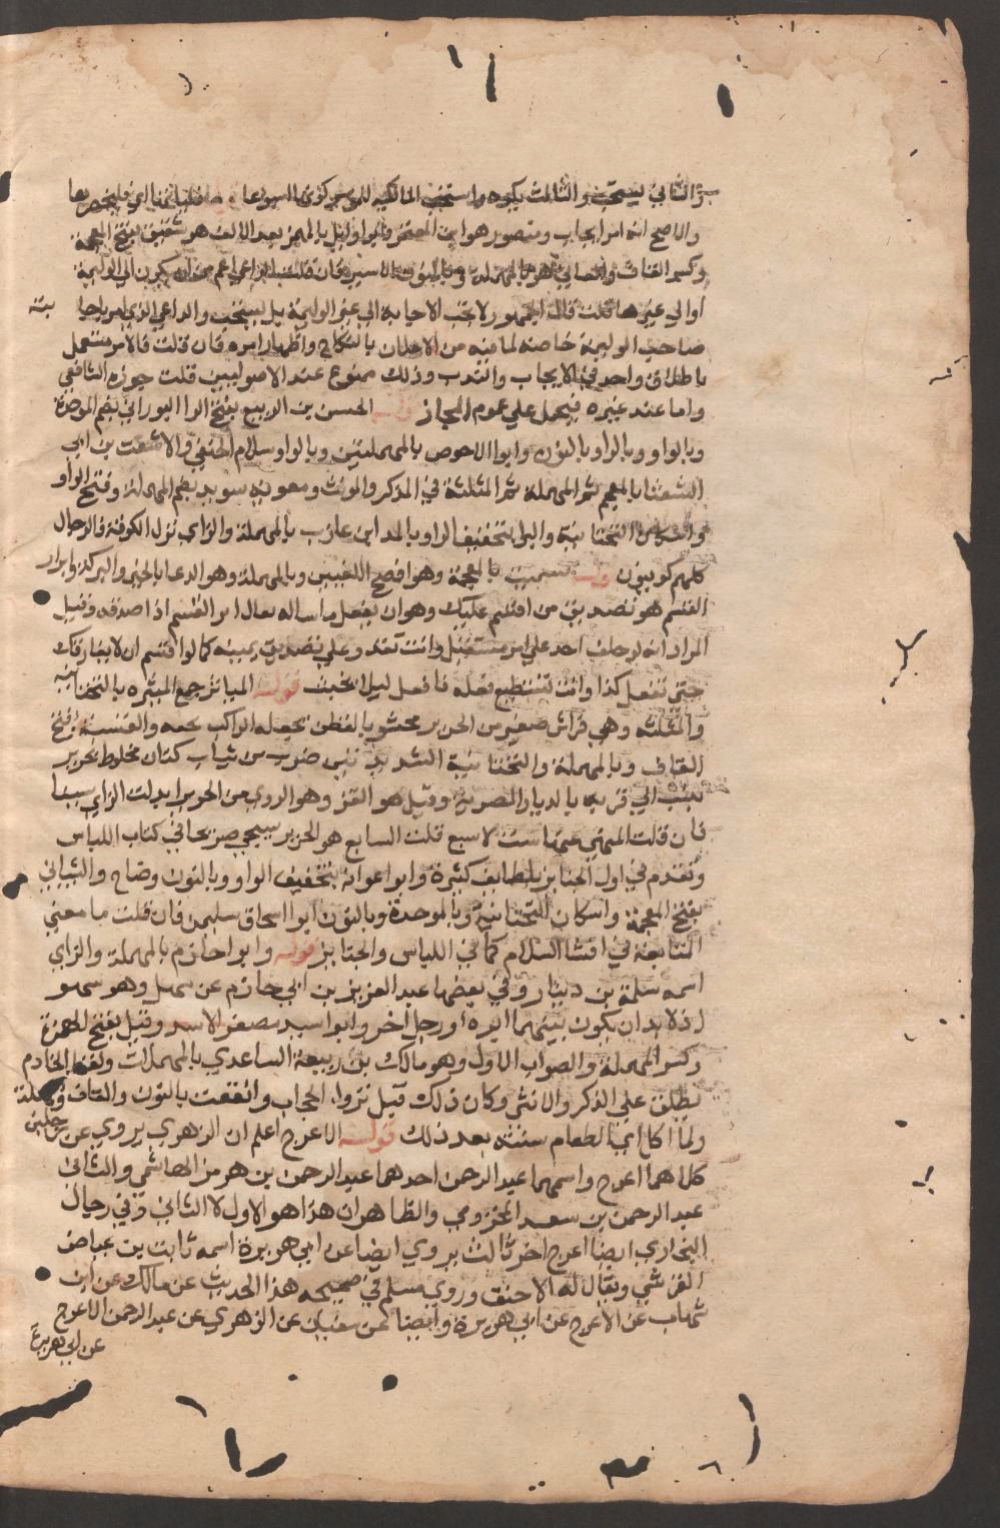 والثاني يستحب والثالث يكره واستحب المالكية للموسر كونها اسبوعا
والاصح انه امر ايجاب ومنصور هو ابن المعتمر وابو وائل بالهمز بعد الالف هو شقيق بفتح المعجمة
وكسر القاف فان قلت الداعي اعم من ان يكون الى الوليمة
او الى غيرها قلت قال الجمهور لا تجب الاجابة الى غير الوليمة بل يستحب والداعي الذي امر باجابته
صاحب الوليمة خاصة لما فيه من الاعلان بالنكاح واظهار امره فان قلت فالامر مستعمل
باطلاق واحد في الايجاب والندب وذلك ممنوع عند الاصوليين قلت جوزه الشافعي
واما عند غيره فيحمل على عموم المجاز قوله الحسن بن الربيع بفتح الرا البوراني بضم الموحدة
وبالواو وبالراو بالنون وابو الاحوص بالمهملتين وبالواو سلام الحنفي والاشعث بن ابي
الشعثا بالمعجم ثم المهملة ثم المثلثة في المذكر والمونث ومعوية بن سويد بضم المهملة وفتح الواو
واسكان التحتانية والبرا بتخفيف الراو بالمد ابن عازب بالمهملة والزاي نزل الكوفة فالرجال
كلهم كوفيون قوله تشميت بالمعجمة وهو افصح اللغتين وبالمهملة وهو الدعا بالخير والبركة وابرار
القسم هو تصديق من اقسم عليك وهو ان يفعل ما ساله يقال ابر القسم اذا صدقه وقيل
المراد انه لو حلف احد على امر مستقبل وانت تقدر على تصديق يمينه كما لو اقسم ان لا يفارقك
حتى تفعل كذا وانت تستطيع فعله فافعل ليلا يحنث قوله المياثر جمع الميثرة بالتحتانية
والمثلثة وهي فراش صغير من الحرير محشو بالقطن يجعله الراكب تحته والقسية بفتح
القاف وبالمهملة والتحتانية الشديدتين ضرب من ثياب كتان مخلوط بحرير
نسب الى قرية بالديار المصرية وقيل هو القز وهو الردي من الحرير ابدلت الزاي سينا
فان قلت المنهي عنها ست لا سبع قلت السابع هو الحرير سيجي صريحا في كتاب اللباس
وتقدم في اول الجنايز بلطايف كثيرة وابو عوانة بتخفيف الواو وبالنون وضاح والشيباني
بفتح المعجمة واسكان التحتانية وبالموحدة وبالنون ابو اسحاق سليمن فان قلت ما معنى
المتابعة في افشا السلام كما في اللباس والجنايز قوله وابو حازم بالمهملة والزاي
اسمه سلمة بن دينار وفي بعضها عبد العزيز بن ابي حازم عن سهل وهو سهو
اذ لا بد ان يكون بينهما ابوه او رجل اخر وابو اسيد مصغر الاسد وقيل بفتح الهمزة
وكسر المهملة والصواب الاول وهو مالك بن ربيعة الساعدي بالمهملات ولفظ الخادم
يطلق على الذكر والانثى وكان ذلك قبل نزول الحجاب وانقعت بالنون والقاف والمهملة
ولما اكل اي الطعام سقته بعد ذلك قوله الاعرج اعلم ان الزهري يروي عن رجلين
كلاهما اعرج واسمهما عبد الرحمن احدهما عبد الرحمن بن هرمز الهاشمي والثاني
عبد الرحمن بن سعد المخزومي والظاهر ان هذا هو الاول لا الثاني وفي رجال
البخاري ايضا اعرج اخر ثالث يروي ايضا عن ابي هريرة اسمه ثابت بن عياض
القرشي ويقال له الاحنف وروي مسلم في صحيحه هذا الحديث عن مالك عن ابن
شهاب عن الاعرج عن ابي هريرة وايضا عن سفيان عن الزهري عن عبد الرحمن الاعرج
عن ابي هريرة